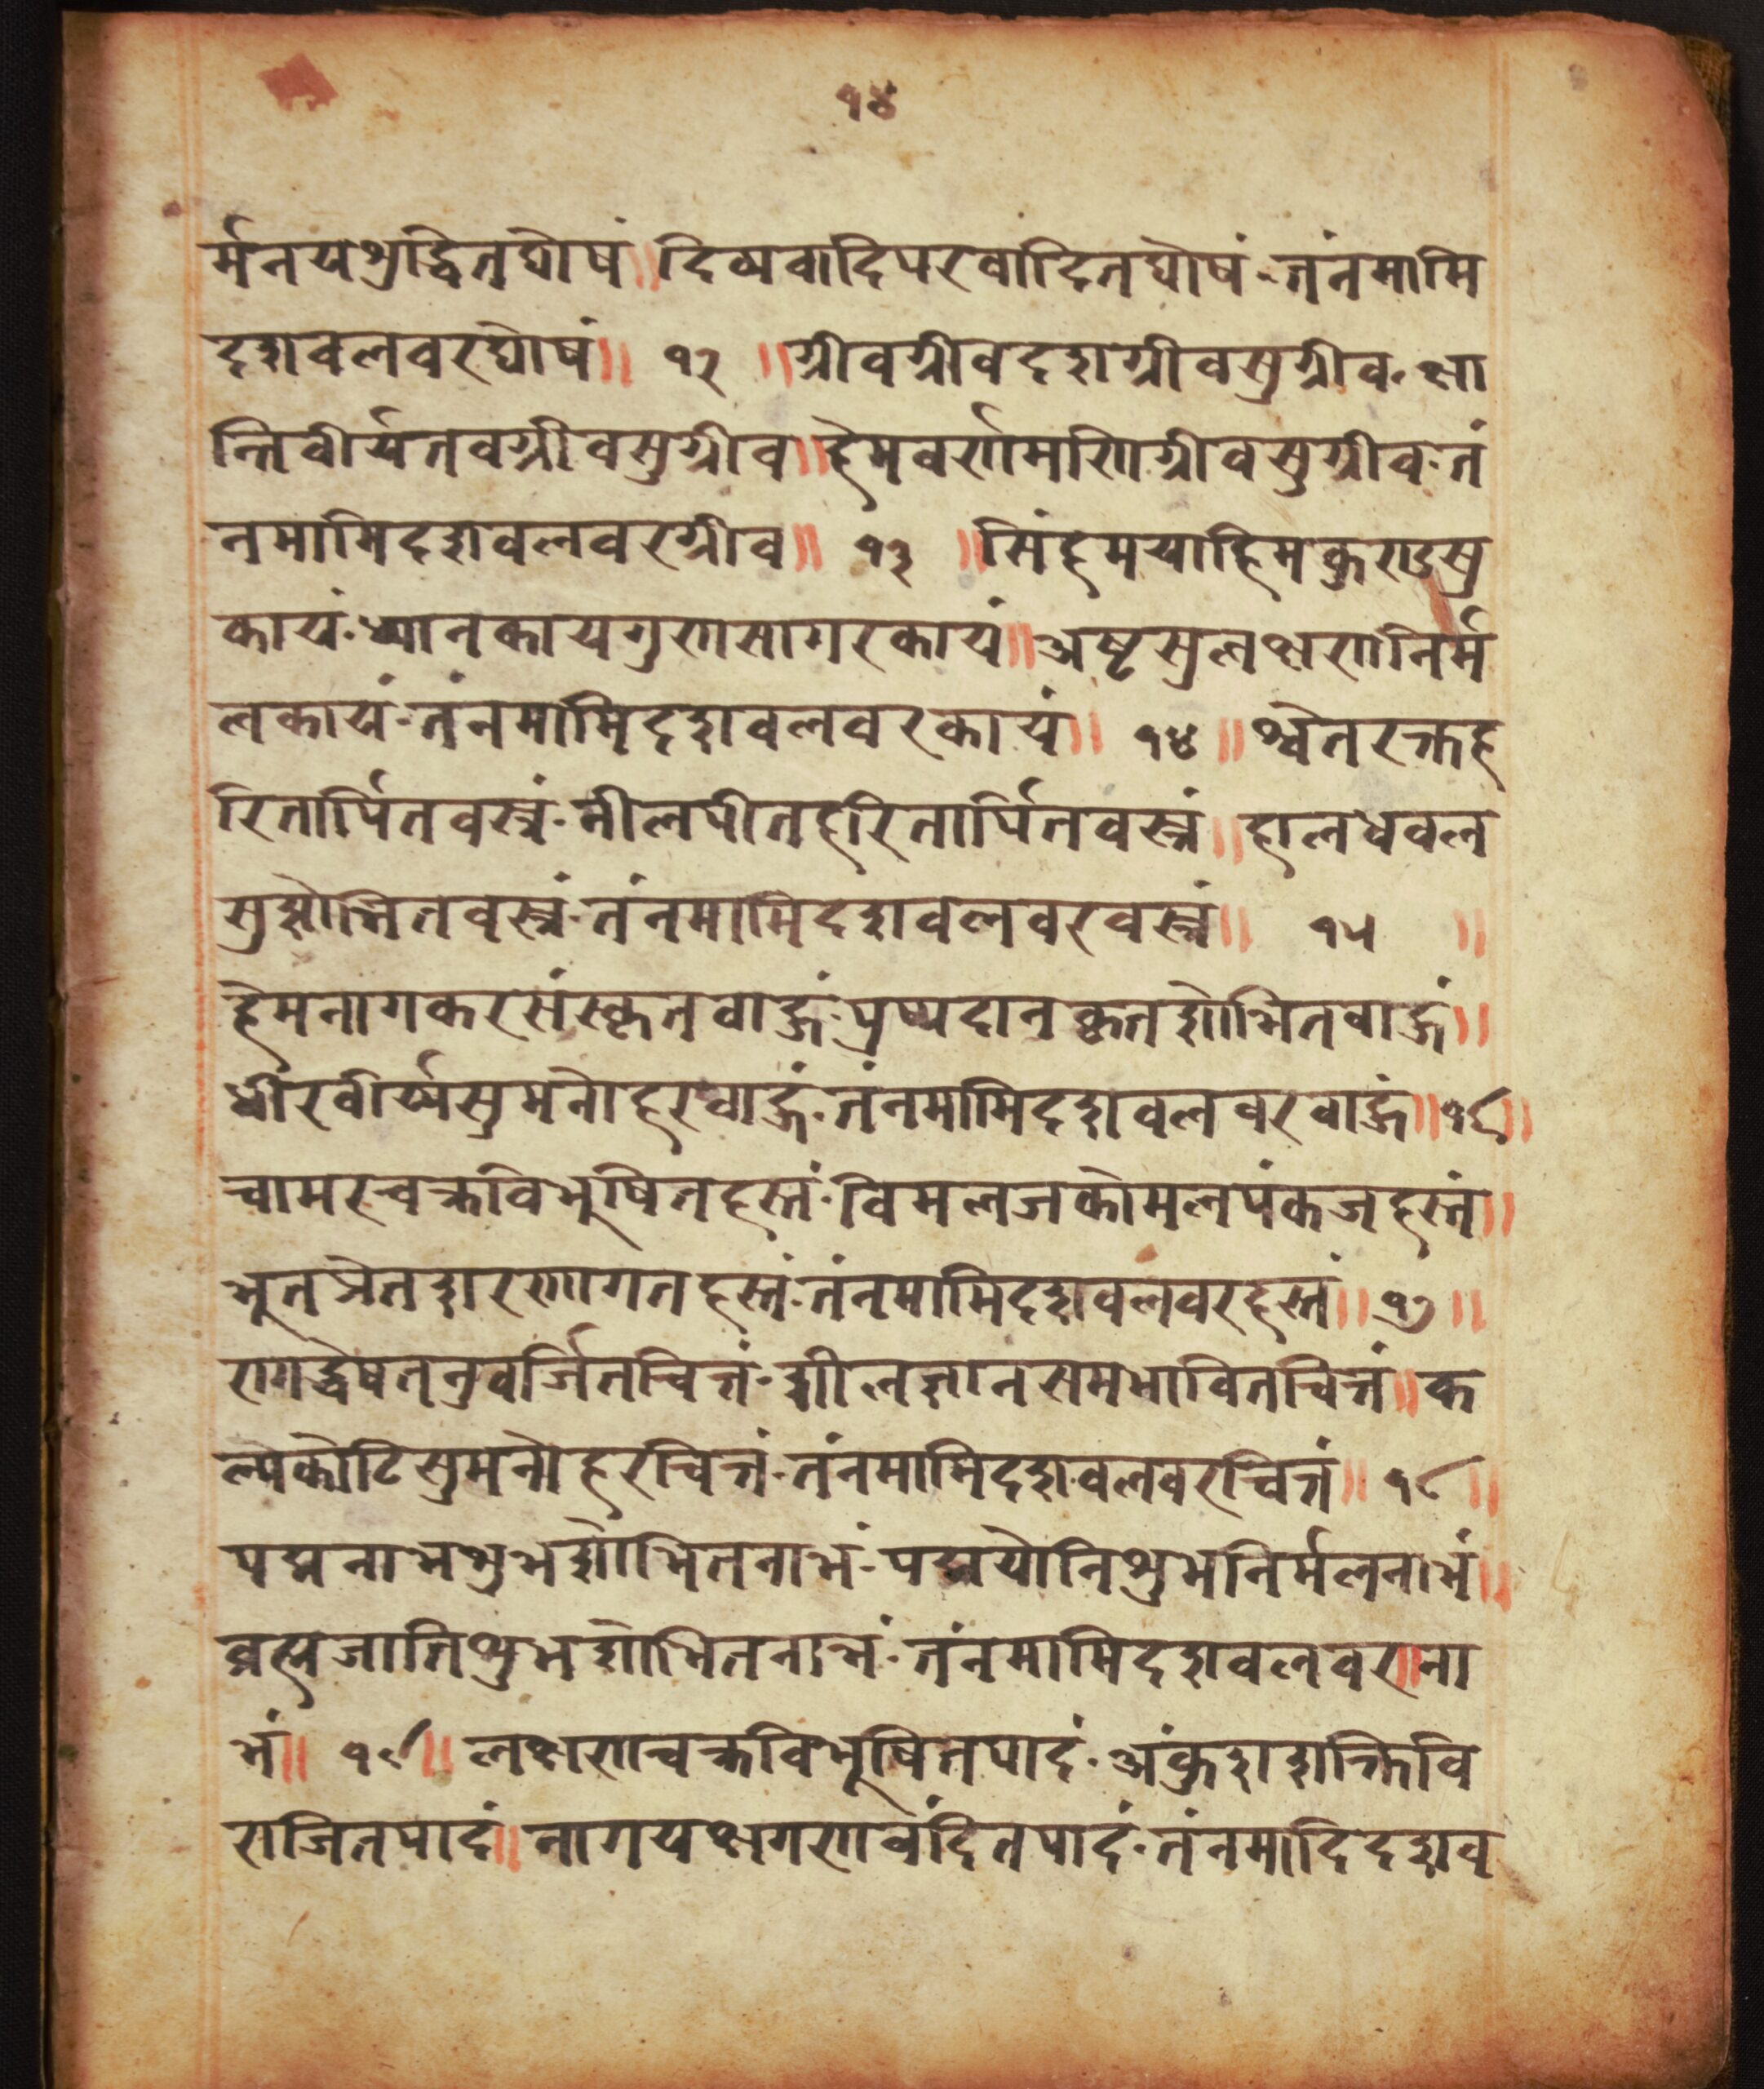 १४
र्मनयशुद्धितघोषं॥दिव्यवादिपरवादितघोषं-तंनमामि
दशवलवरघोषं॥ १२ ॥ग्रीवग्रीवदशग्रीवसुग्रीव-क्षा
न्तिवीर्यतवग्रीवसुग्रीव॥हेमवर्णमणिग्रीवसुग्रीव-तं
नमामिदशवलवरग्रीव॥ १३ ॥सिंहमयाहिमकुण्डसु
कायं-ध्यानकायगुणसागरकायं॥अष्टसुलक्षणनिर्म
लकायं-तंनमामिदशवलवरकायं॥ १४ ॥श्वेतरक्तह
रितार्पितवस्त्रं-नीलपीतहरितार्पितवस्त्रं॥हालधवल
सुशोभितवस्त्रं-तंनमामिदशवलवरवस्त्रं॥ १५ ॥
हेमनागकरसंस्कृतवाहुं-पुण्यदानकृतशोभितवाहुं॥
धीरवीर्य्यसुमनोहरवाहुं-तंनमामिदशवलवरवाहुं॥१६॥
चामरचक्रविभुषितहस्तं-विमलजकोमलपंकजहस्तं॥
भुतप्रेतशरणागतहस्तं-तंनमामिदशवलवरहस्तं॥१७॥
रागद्धेषतनुवर्जितचित्तं-शीलज्ञानसमभावितचित्तं॥क
ल्पकोटिसुमनोहरचित्तं-तंनमामिदशवलवरचित्तं॥१८॥
पद्मनाभशुभशोभितनाभं-पद्मयोनिशुभनिर्मलनाभं॥
व्रह्मजातिशुभशोभितनाभं-तंनमामिदशवलवरना
भं॥ १९॥लक्षणचक्रविभूषितपादं-अंकुशशक्तिवि
राजितपादं॥नागयक्षगणवंदितपादं-तंनमादिदशव